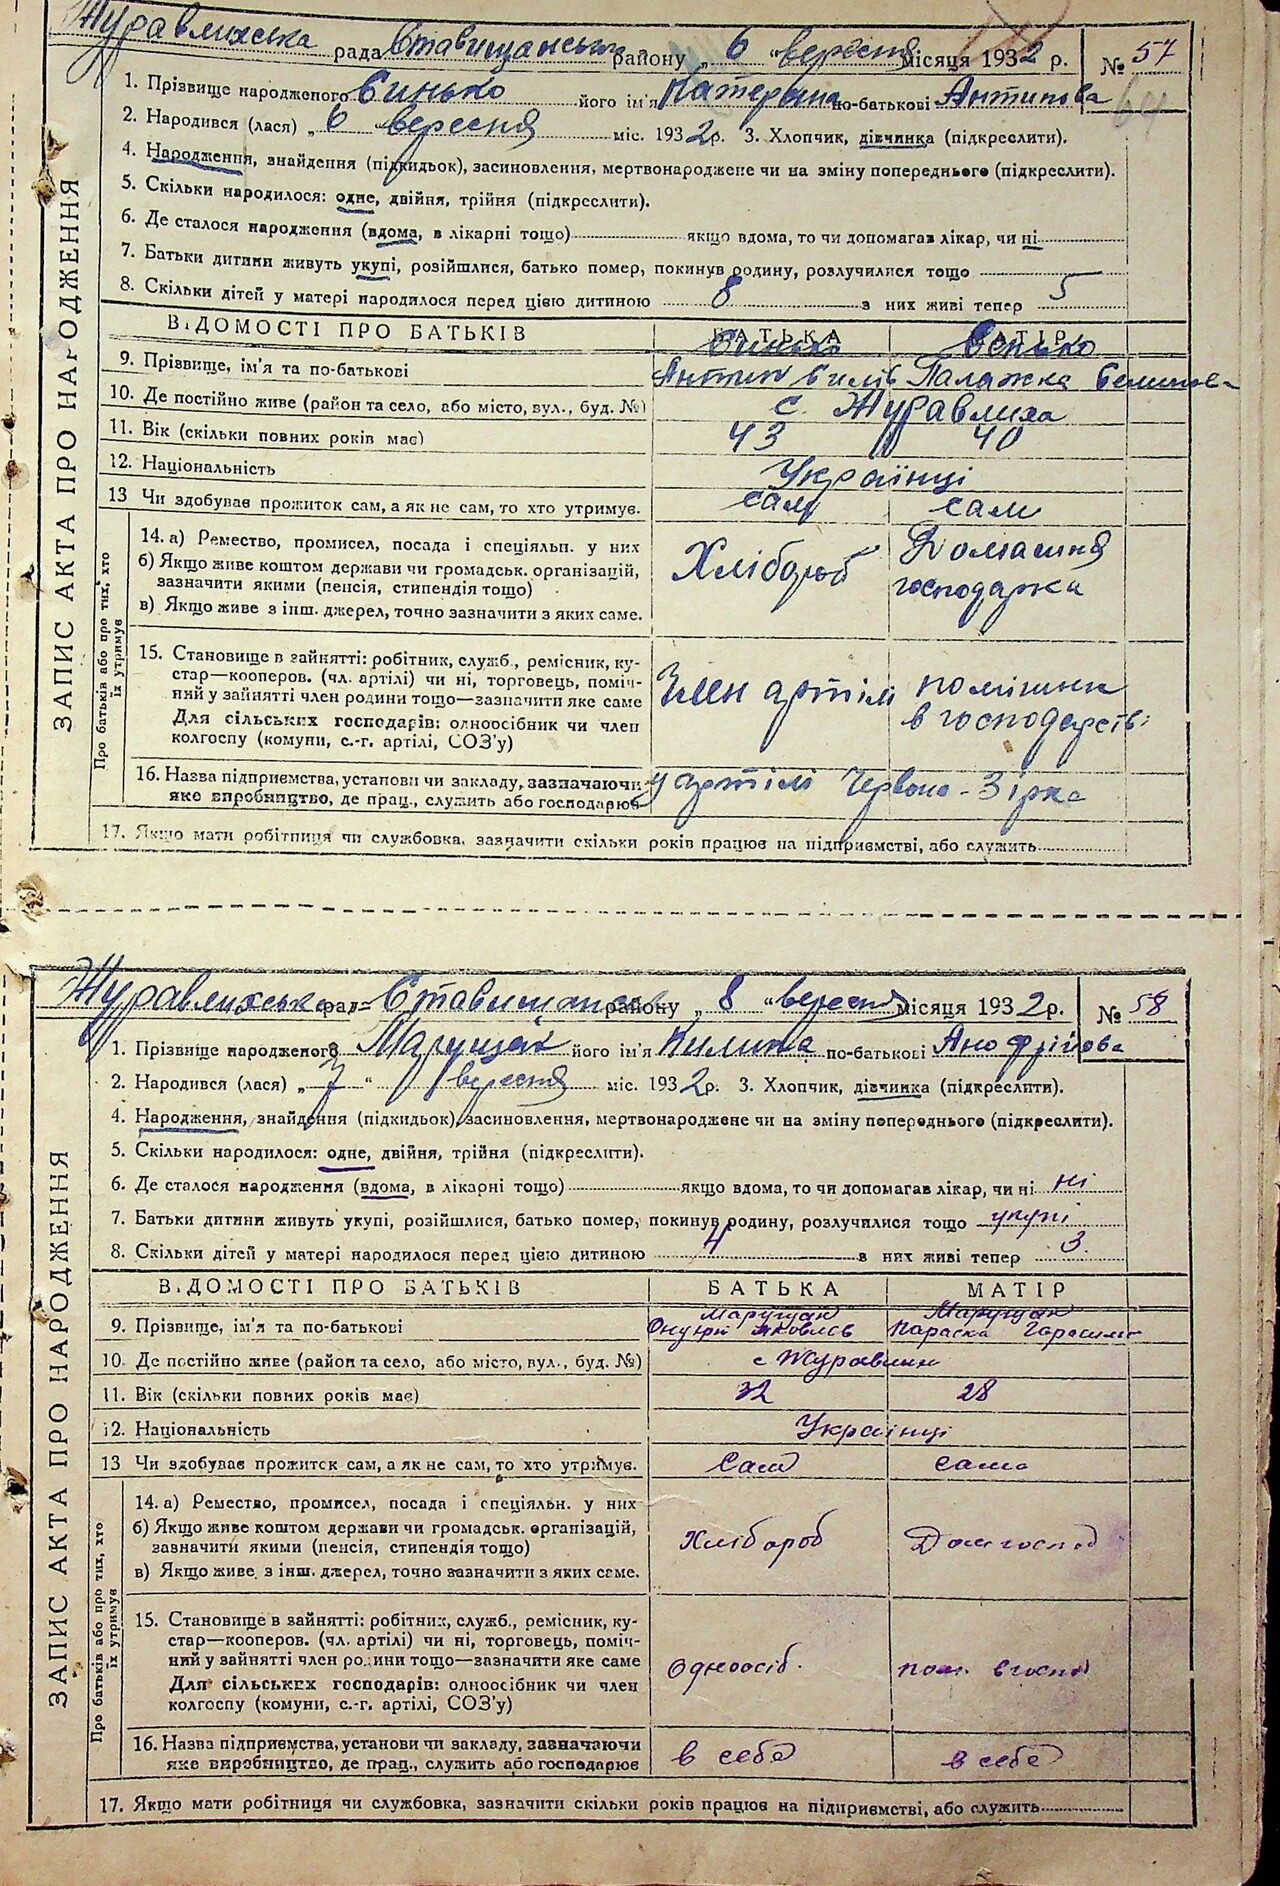 Журавлихська рада Ставищанськ району „ 6 “ вересня місяця 1932 р. № 57
1. Прізвище народженого Синько його ім'я Катерина по-батькові Антипова
2. Народився (лася) „ 6 вересня міс. 1932р. 3. Хлопчик, дівчинка (підкреслити).
4. Народження, знайдення (підкидьок), засиновлення, мертвонароджене чи на зміну попереднього (підкреслити).
5. Скільки народилося: одне, двійня, трійня (підкреслити).
6. Де сталося народження (вдома, в лікарні тощо) якщо вдома, то чи допомагав лікар, чи ні
7. Батьки дитини живуть укупі, розійшлися, батько помер, покинув родину, розлучилися тощо
8. Скільки дітей у матері народилося перед цією дитиною 8 з них живі тепер 5
ЗАПИС АКТА ПРО НАРОДЖЕННЯ
ВІДОМОСТІ ПРО БАТЬКІВ БАТЬКА МАТІР
Синько
9. Прізвище, ім'я та по-батькові Антип Палажка
10. Де постійно живе (район та село, або місто, вул., буд. №) с. Журавлиха
11. Вік (скільки повних років має) 43 40
12. Національність Українці
13 Чи здобуває прожиток сам, а як не сам, то хто утримує. сам сам
Про батьків або про тих, хто їх утримує
14. а) Ремество, промисел, посада і спеціяльн. у них
б) Якщо живе коштом держави чи громадськ. організацій,
зазначити якими (пенсія, стипендія тощо)
в) Якщо живе з інш. джерел, точно зазначити з яких саме.
Хлібороб Домашня
господарка
15. Становище в зайнятті: робітник, служб., ремісник, ку-
стар—кооперов. (чл. артілі) чи ні, торговець, поміч-
ний у зайнятті член родини тощо—зазначити яке саме
Для сільських господарів: одноосібник чи член
колгоспу (комуни, с.-г. артілі, СОЗ'у)
Член артілі
в господарстві
16. Назва підприємства, установи чи закладу, зазначаючи
яке виробництво, де прац., служить або господарює
у артілі Червона-Зірка
17. Якщо мати робітниця чи службовка, зазначити скільки років працює на підприємстві, або служить
Журавлихська рад Ставищанськ району „ 8 “ вересня місяця 1932р. № 58
1. Прізвище народженого Марущак його ім'я Килина по-батькові
2. Народився (лася) „ 7 “ вересня міс. 1932р. 3. Хлопчик, дівчинка (підкреслити).
4. Народження, знайдення (підкидьок), засиновлення, мертвонароджене чи на зміну попереднього (підкреслити).
5. Скільки народилося: одне, двійня, трійня (підкреслити).
6. Де сталося народження (вдома, в лікарні тощо) якщо вдома, то чи допомагав лікар, чи ні ні
7. Батьки дитини живуть укупі, розійшлися, батько помер, покинув родину, розлучилися тощо укупі
8. Скільки дітей у матері народилося перед цією дитиною 4 з них живі тепер 3
ЗАПИС АКТА ПРО НАРОДЖЕННЯ
ВІДОМОСТІ ПРО БАТЬКІВ БАТЬКА МАТІР
Марущак Марущак
9. Прізвище, ім'я та по-батькові Яковлев Параска
10. Де постійно живе (район та село, або місто, вул., буд. №)
11. Вік (скільки повних років має) 32 28
12. Національність Українці
13 Чи здобуває прожиток сам, а як не сам, то хто утримує. Сам сама
Про батьків або про тих, хто їх утримує
14. а) Ремество, промисел, посада і спеціяльн. у них
б) Якщо живе коштом держави чи громадськ. організацій,
зазначити якими (пенсія, стипендія тощо)
в) Якщо живе з інш. джерел, точно зазначити з яких саме.
Хлібороб Дом господ
15. Становище в зайнятті: робітник, служб., ремісник, ку-
стар—кооперов. (чл. артілі) чи ні, торговець, поміч-
ний у зайнятті член родини тощо—зазначити яке саме
Для сільських господарів: одноосібник чи член
колгоспу (комуни, с.-г. артілі, СОЗ'у)
Одноосіб. пом. в госпо
16. Назва підприємства, установи чи закладу, зазначаючи
яке виробництво, де прац., служить або господарює
в себе в себе
17. Якщо мати робітниця чи службовка, зазначити скільки років працює на підприємстві, або служить